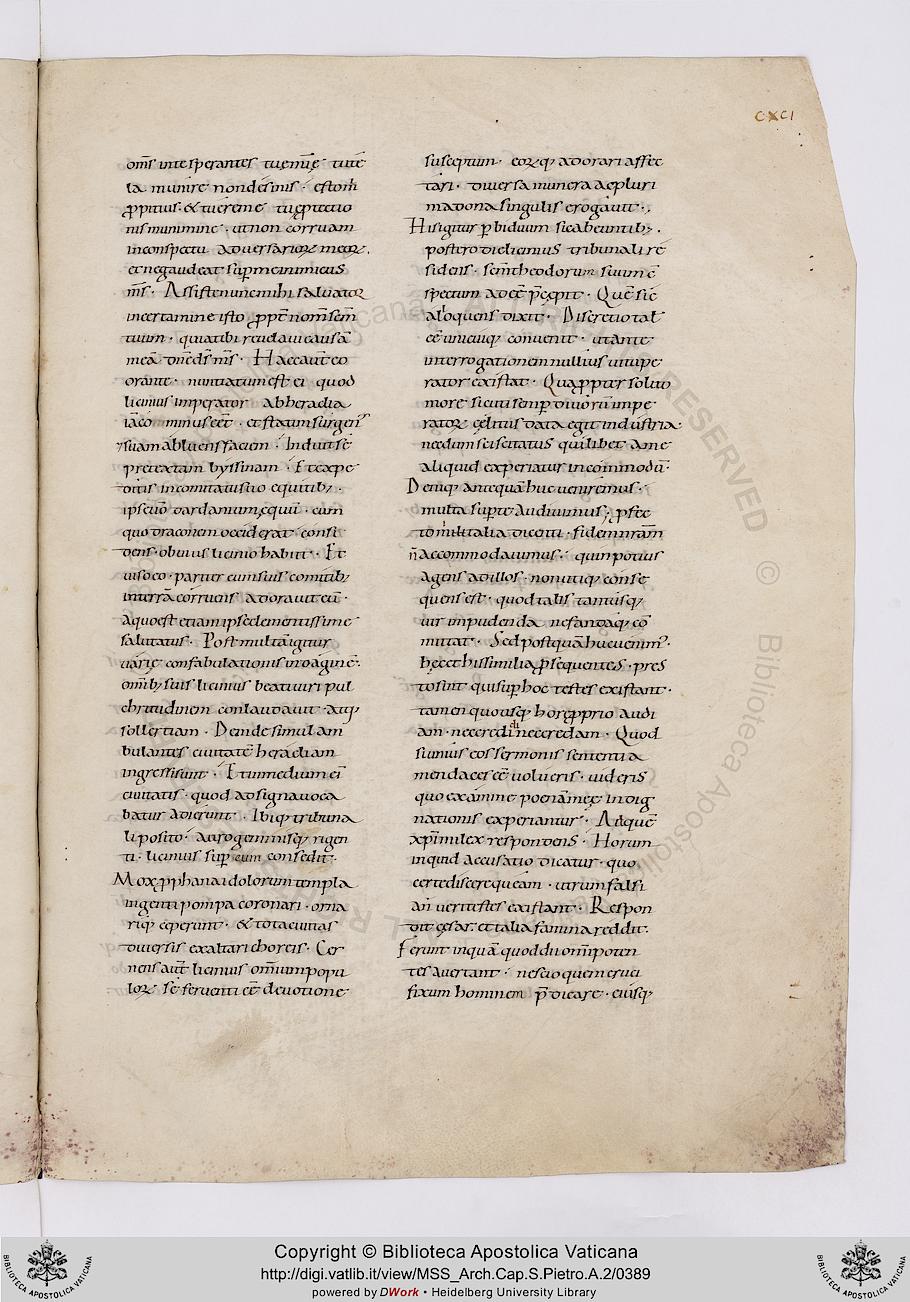 CXCI
om̄s inte sperantes tuę mīę tute
la munire non desinis · esto m̄
ꝓpitius · & tuere me tuę ꝓtectio
nis munimine · ut non corruam
in conspectu adversarioꝝ meoꝝ ·
et ne gaudeat suꝑ me inimicus
m̄s · Assiste nunc mihi salvator
in certamine isto ꝓpt̄ nom̄ sc̄m
tuum · quia tibi revelavi causā
meā dn̄e d̄s m̄s · Haec aut̄ eo
orante · nuntiatum est ei quod
licinius imperator ab heradia
iā co minus eēt · et statim surgens
suam abluens faciem · Induit se
pretextam byssinam · Et expe
ditis in comitatu suo equitib; ·
ipse suo dardanum equū · cum
quo draconem occiderat consi
dens · obvius licinio habiit · Et
viso eo · pariter cum suis comitib;
in terrā corruens adoravit eū ·
A quo est etiam ipse clementissime
salutatus · Post multā igitur
varię confabulationis imaginē ·
omīb; suis licinius beati viri pul
chritudinem conlaudavit · atq;
sollertiam · Deinde simul am
bulantes civitatē heracliam
ingressi sunt · Et in medium ei
civitatis · quod ad signa voca
batur adierunt · Ibiq; tribuna
li posito · auro gemmisq; rigen
ti · licinius suꝑ eum consedit ·
Mox ꝓphana idolorum templa
ingenti pompa coronari · orna
riq; ceperunt · & tota civitas
diversis exaltari choreis · Cer
nens aut̄ licinius omnium popu
loꝝ se ferventi eē devotione
susceptum · eoꝝq; adorari affec
tari · diversa munera ac pluri
ma dona singulis erogavit ·,
His igitur ꝑ biduum sic abeuntib; ·
postero die licinius tribunali re
sidens · sc̄m theodorum suum c̄
spectum ad eē p̄cepit · Quē sic
alloquens dixit · Discretio tal
eē unicuiq; convenit · ut ante
interrogationem nullius vitupe
rator existat · Quapropter solito
more sicuti semꝑ divorū impe
ratoꝝ cęlitus data egit industria
necdum sciscitatus quilibet a me
aliquid experiatur incommodū ·
Deniq; antequā huc veniremus ·
multa suꝑ te audivimus · ꝓfec
to mihi talia dicenti · fidem nr̄am
n̄ accommodavimus · quin potius
agens ad illos · non utiq; conse
quens est · quod talis tantusq;
vir impudenda nefandaq; cō
mittat · Sed postquā huc venim; ·
hęc et his similia ꝓsequentes · pres
to sunt qui suꝑ hoc testes existant ·
tamen quousq; hoc ꝓprio audi
am · nec credidi nec credam · Quod
si unius eos sermonis sententia
mendaces eē volueris · videris
quo examine poenā meę indig
nationis experiantur · Ad quē
xp̄i miles respondens · Horum
inquid accusatio dicatur · quo
certe discere queam · utrum falsi
an veri testes existant · Respon
dit cęsar · et talia famina reddit ·
Ferunt inquā quod dii om̄ipoten
tes avertant · nescio quem cruci
fixum hominem p̄dicare · eiusq;
Copyright © Biblioteca Apostolica Vaticana
http://digi.vatlib.it/view/MSS_Arch.Cap.S.Pietro.A.2/0389
powered by DWork • Heidelberg University Library